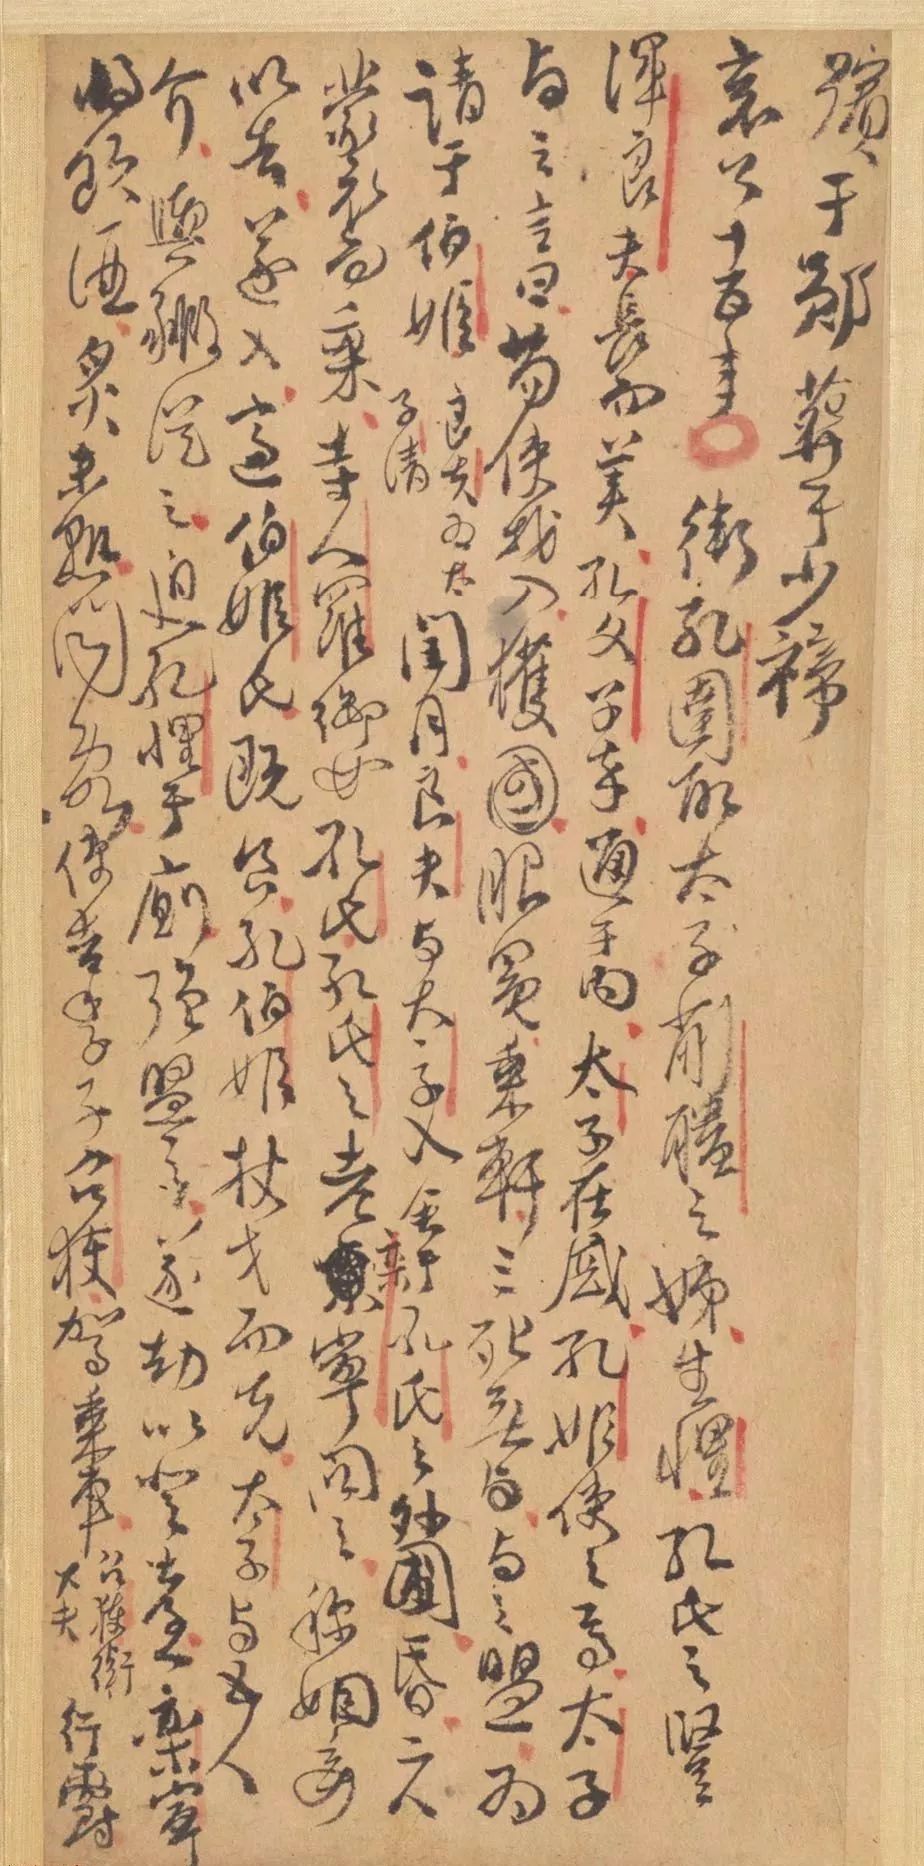 殯于鄖葬于少禘
哀公十五年 衛孔圉取太子蒯聵之姊生悝孔氏之豎
渾良夫長而美孔文子卒通于內太子在戚孔姬使之焉太子
與之言曰苟使我入獲國服冕乘軒三死無與與之盟為
請于伯姬良夫為太子請閏月良夫與太子入舍于孔氏之外圃昏二人
蒙衣而乘寺人羅御如孔氏孔氏之老欒寧問之稱姻妾
以告遂入適伯姬氏既食孔伯姬杖戈而先太子與五人
介輿豭從之迫孔悝于廁強盟之遂劫以登臺欒寧
將飲酒炙未熟聞亂使告季子召獲駕乘車召獲衛大夫行爵